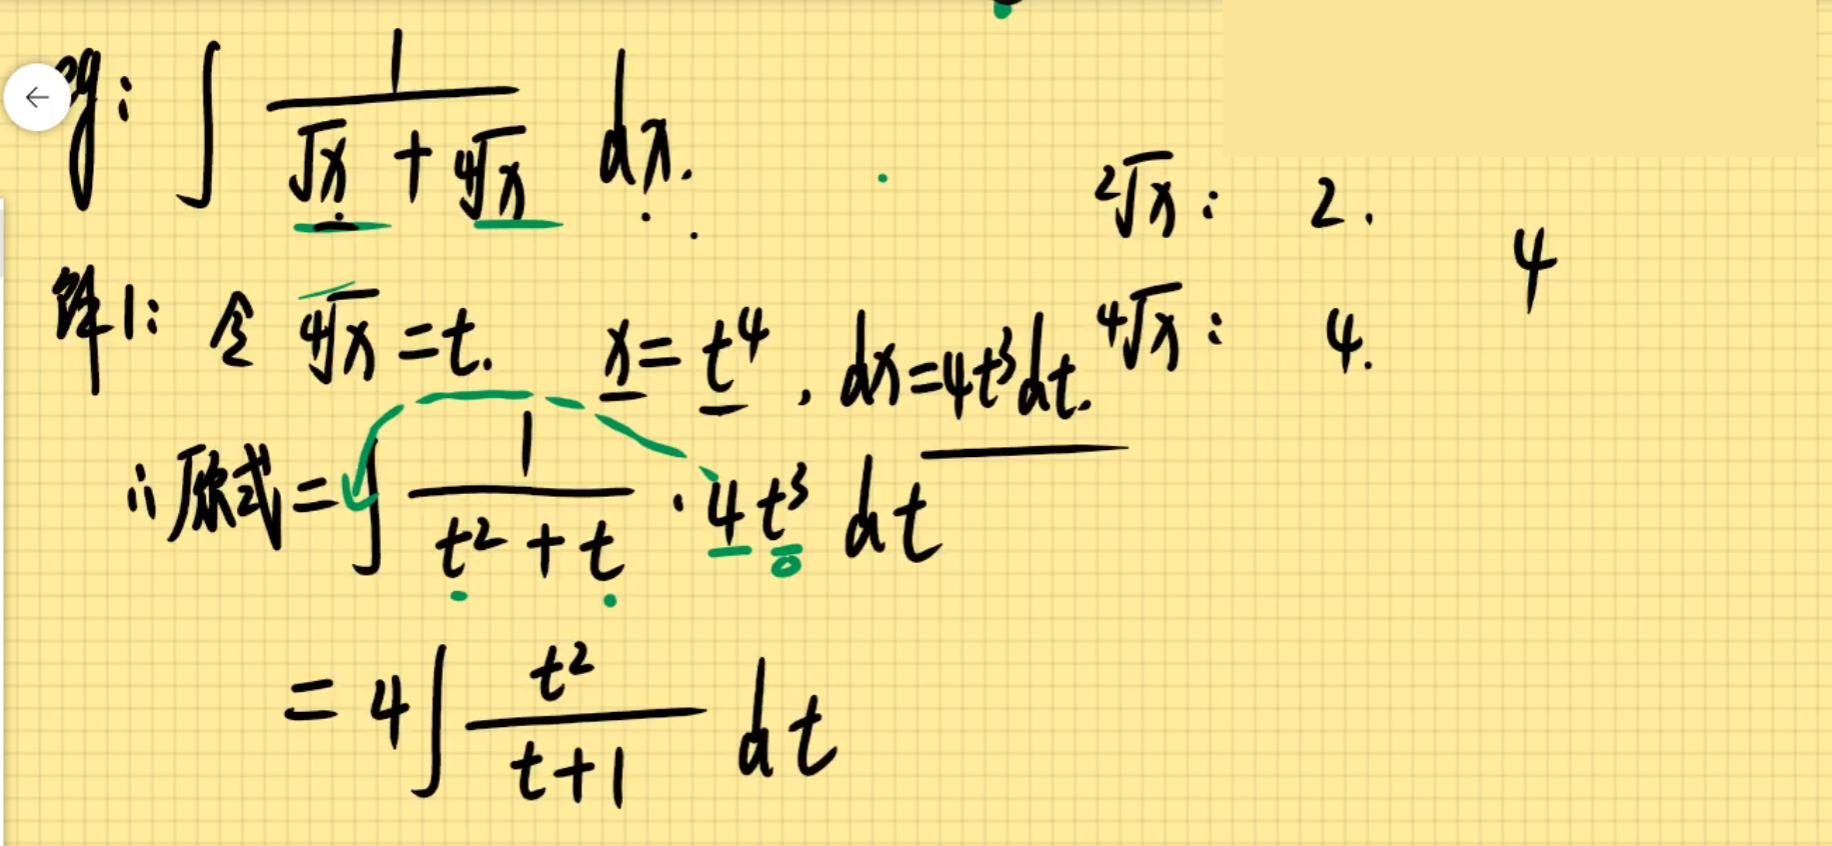 例: ∫ 1/(√x + ∜x) dx.
²√x: 2.
4
解1: 令 ⁴√x = t. x = t⁴, dx = 4t³dt.
⁴√x: 4.
∴ 原式 = ∫ 1/(t² + t) · 4t³ dt
= 4∫ t²/(t+1) dt